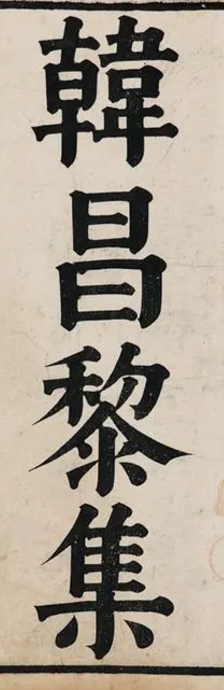 韓昌黎集